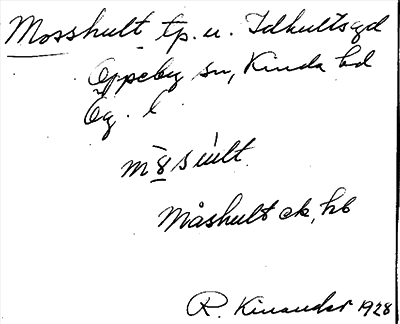 Mosshult tp. u. Idhultsgd
Oppeby sn, Kinda hd
Ög. l
Måshult ek, hb
R. Kinander 1928